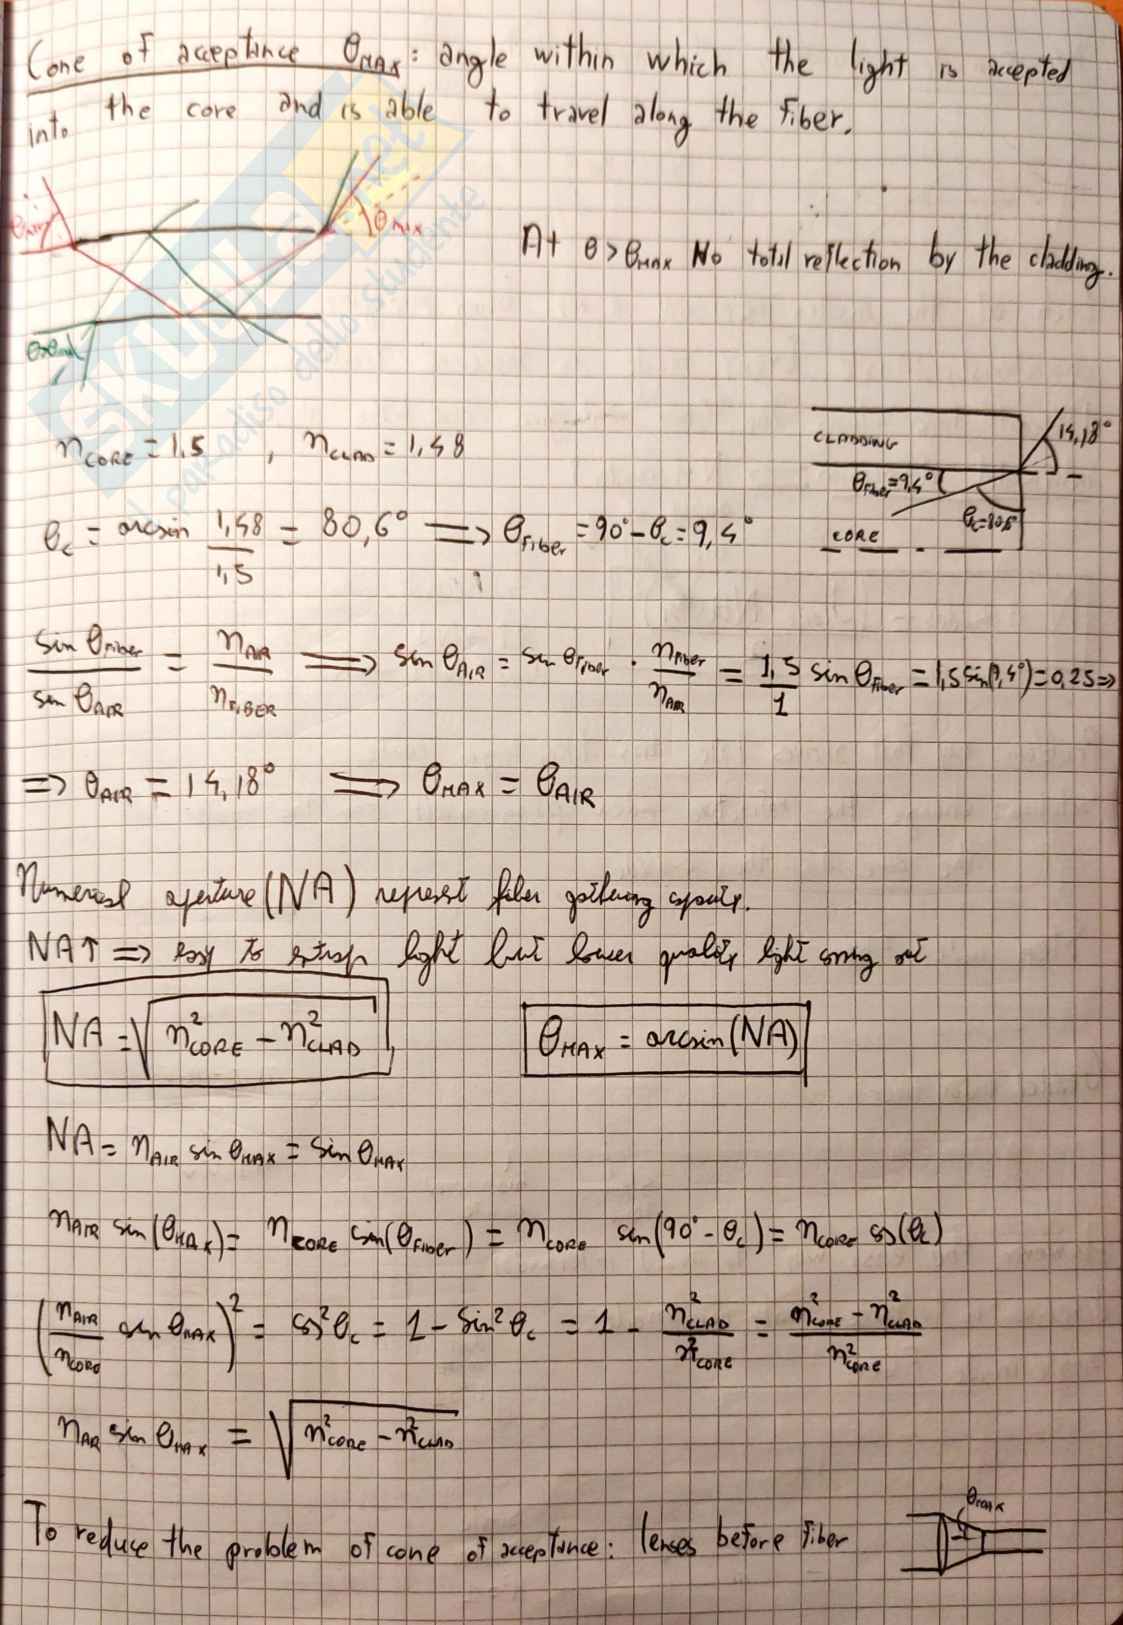 Cone of acceptance θMAX: angle within which the light is accepted
into the core and is able to travel along the fiber.
θmax
θmax
At θ>θMAX No total reflection by the cladding.
SKUOLA.net
il paradiso dello studente
nCORE = 1,5 , nCLAD = 1,48
CLADDING
14,18°
θFiber=9,4°
θc=80,6°
CORE
θc = arcsin 1,48/1,5 = 80,6° ⟹ θFiber = 90° - θc = 9,4°
sin θFiber / sin θAIR = nAIR / nFIBER ⟹ sin θAIR = sin θFiber · nFiber/nAIR = 1,5/1 sin θFiber = 1,5 sin(9,4°) = 0,25 ⇒
⇒ θAIR = 14,18° ⟹ θMAX = θAIR
Numerical aperture (NA) represt fiber gathering capacity.
NA↑ ⇒ easy to entrap light but lower quality light coming out
NA = √(n²CORE - n²CLAD)
θMAX = arcsin(NA)
NA = nAIR sin θMAX = sin θMAX
nAIR sin(θMAX) = nCORE sin(θFiber) = nCORE sen(90° - θc) = nCORE cos(θc)
(nAIR/nCORE sin θMAX)² = cos²θc = 1 - sin²θc = 1 - n²CLAD/n²CORE = (n²CORE - n²CLAD)/n²CORE
nAIR sin θMAX = √(n²CORE - n²CLAD)
To reduce the problem of cone of acceptance: lenses before fiber
θmax